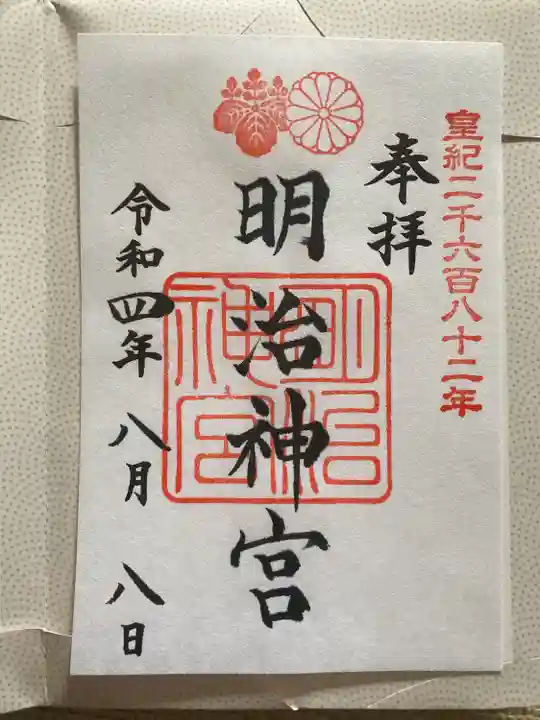 皇紀二千六百八十二年
奉拝
明治神宮
明治神宮
令和四年 八月 八日